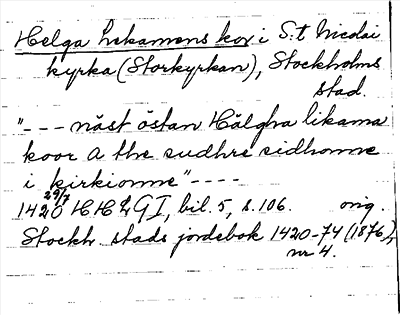 Helga lekamens kor i S:t Nicolai
kyrka (Storkyrkan), Stockholms
stad.
"--- näst östan Hälgha likama
koor a the sudhre sidhonne
i kirkionne" ----
29/7
1420 HH G I, bil. 5, s. 106. orig.
Stockh. stads jordebok 1420-74 (1876),
nr 4.